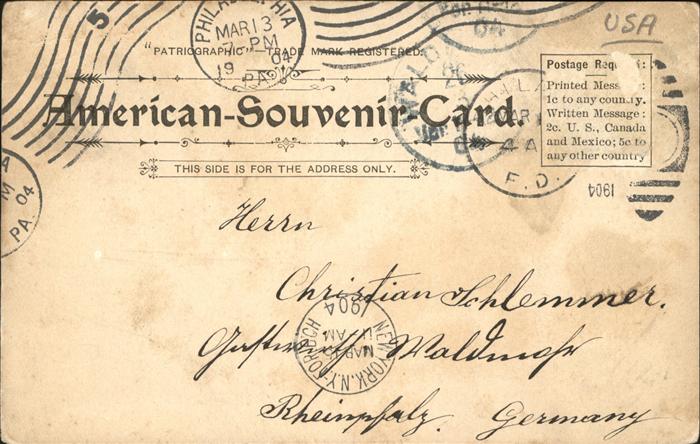 5
PHILADELPHIA
MAR 13
PM
19 04
PA.
USA
04
"PATRIOGRAPHIC"—TRADE MARK REGISTERED.
American-Souvenir-Card.
THIS SIDE IS FOR THE ADDRESS ONLY.
Postage Req :
Printed Message:
1c to any country.
Written Message:
2c. U. S., Canada
and Mexico; 5c to
any other country
F. D.
1904
A
M 04
PA.
Herrn
Christian Schlemmer.
Gastwirth Waldmohr
Rheinpfalz. Germany
NEW YORK, N.Y.
MAR
AM
1904